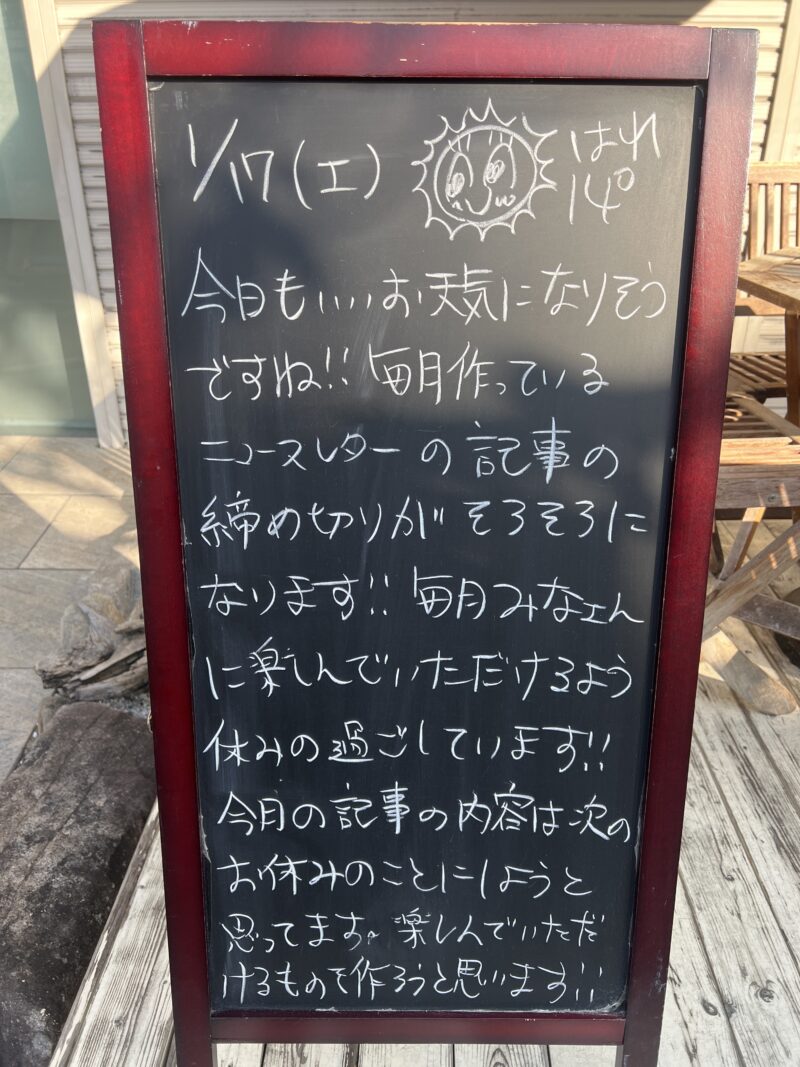 1/17(土) はれ
14°
今日もいいお天気になりそう
ですね!! 毎月作っている
ニュースレターの記事の
締め切りがそろそろに
なります!! 毎月みなさん
に楽しんでいただけるよう
休みの過ごしています!!
今月の記事の内容は次の
お休みのことにしようと
思ってます。楽しんでいただ
けるものを作ろうと思います!!